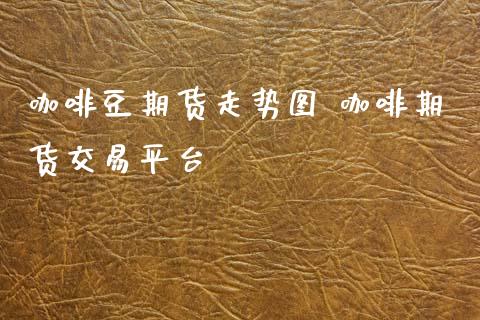 咖啡豆期货走势图 咖啡期
货交易平台